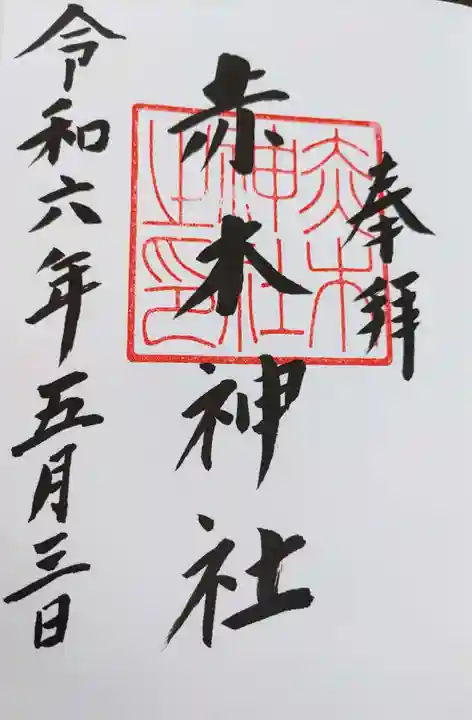 奉拝
赤木神社
赤木
神社
之印
令和六年五月三日